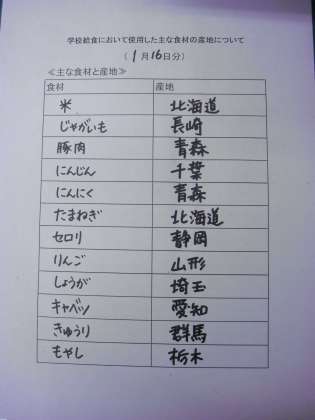 学校給食において使用した主な食材の産地について
(1月16日分)
≪主な食材と産地≫
食材 産地
米 北海道
じゃがいも 長崎
豚肉 青森
にんじん 千葉
にんにく 青森
たまねぎ 北海道
セロリ 静岡
りんご 山形
しょうが 埼玉
キャベツ 愛知
きゅうり 群馬
もやし 栃木